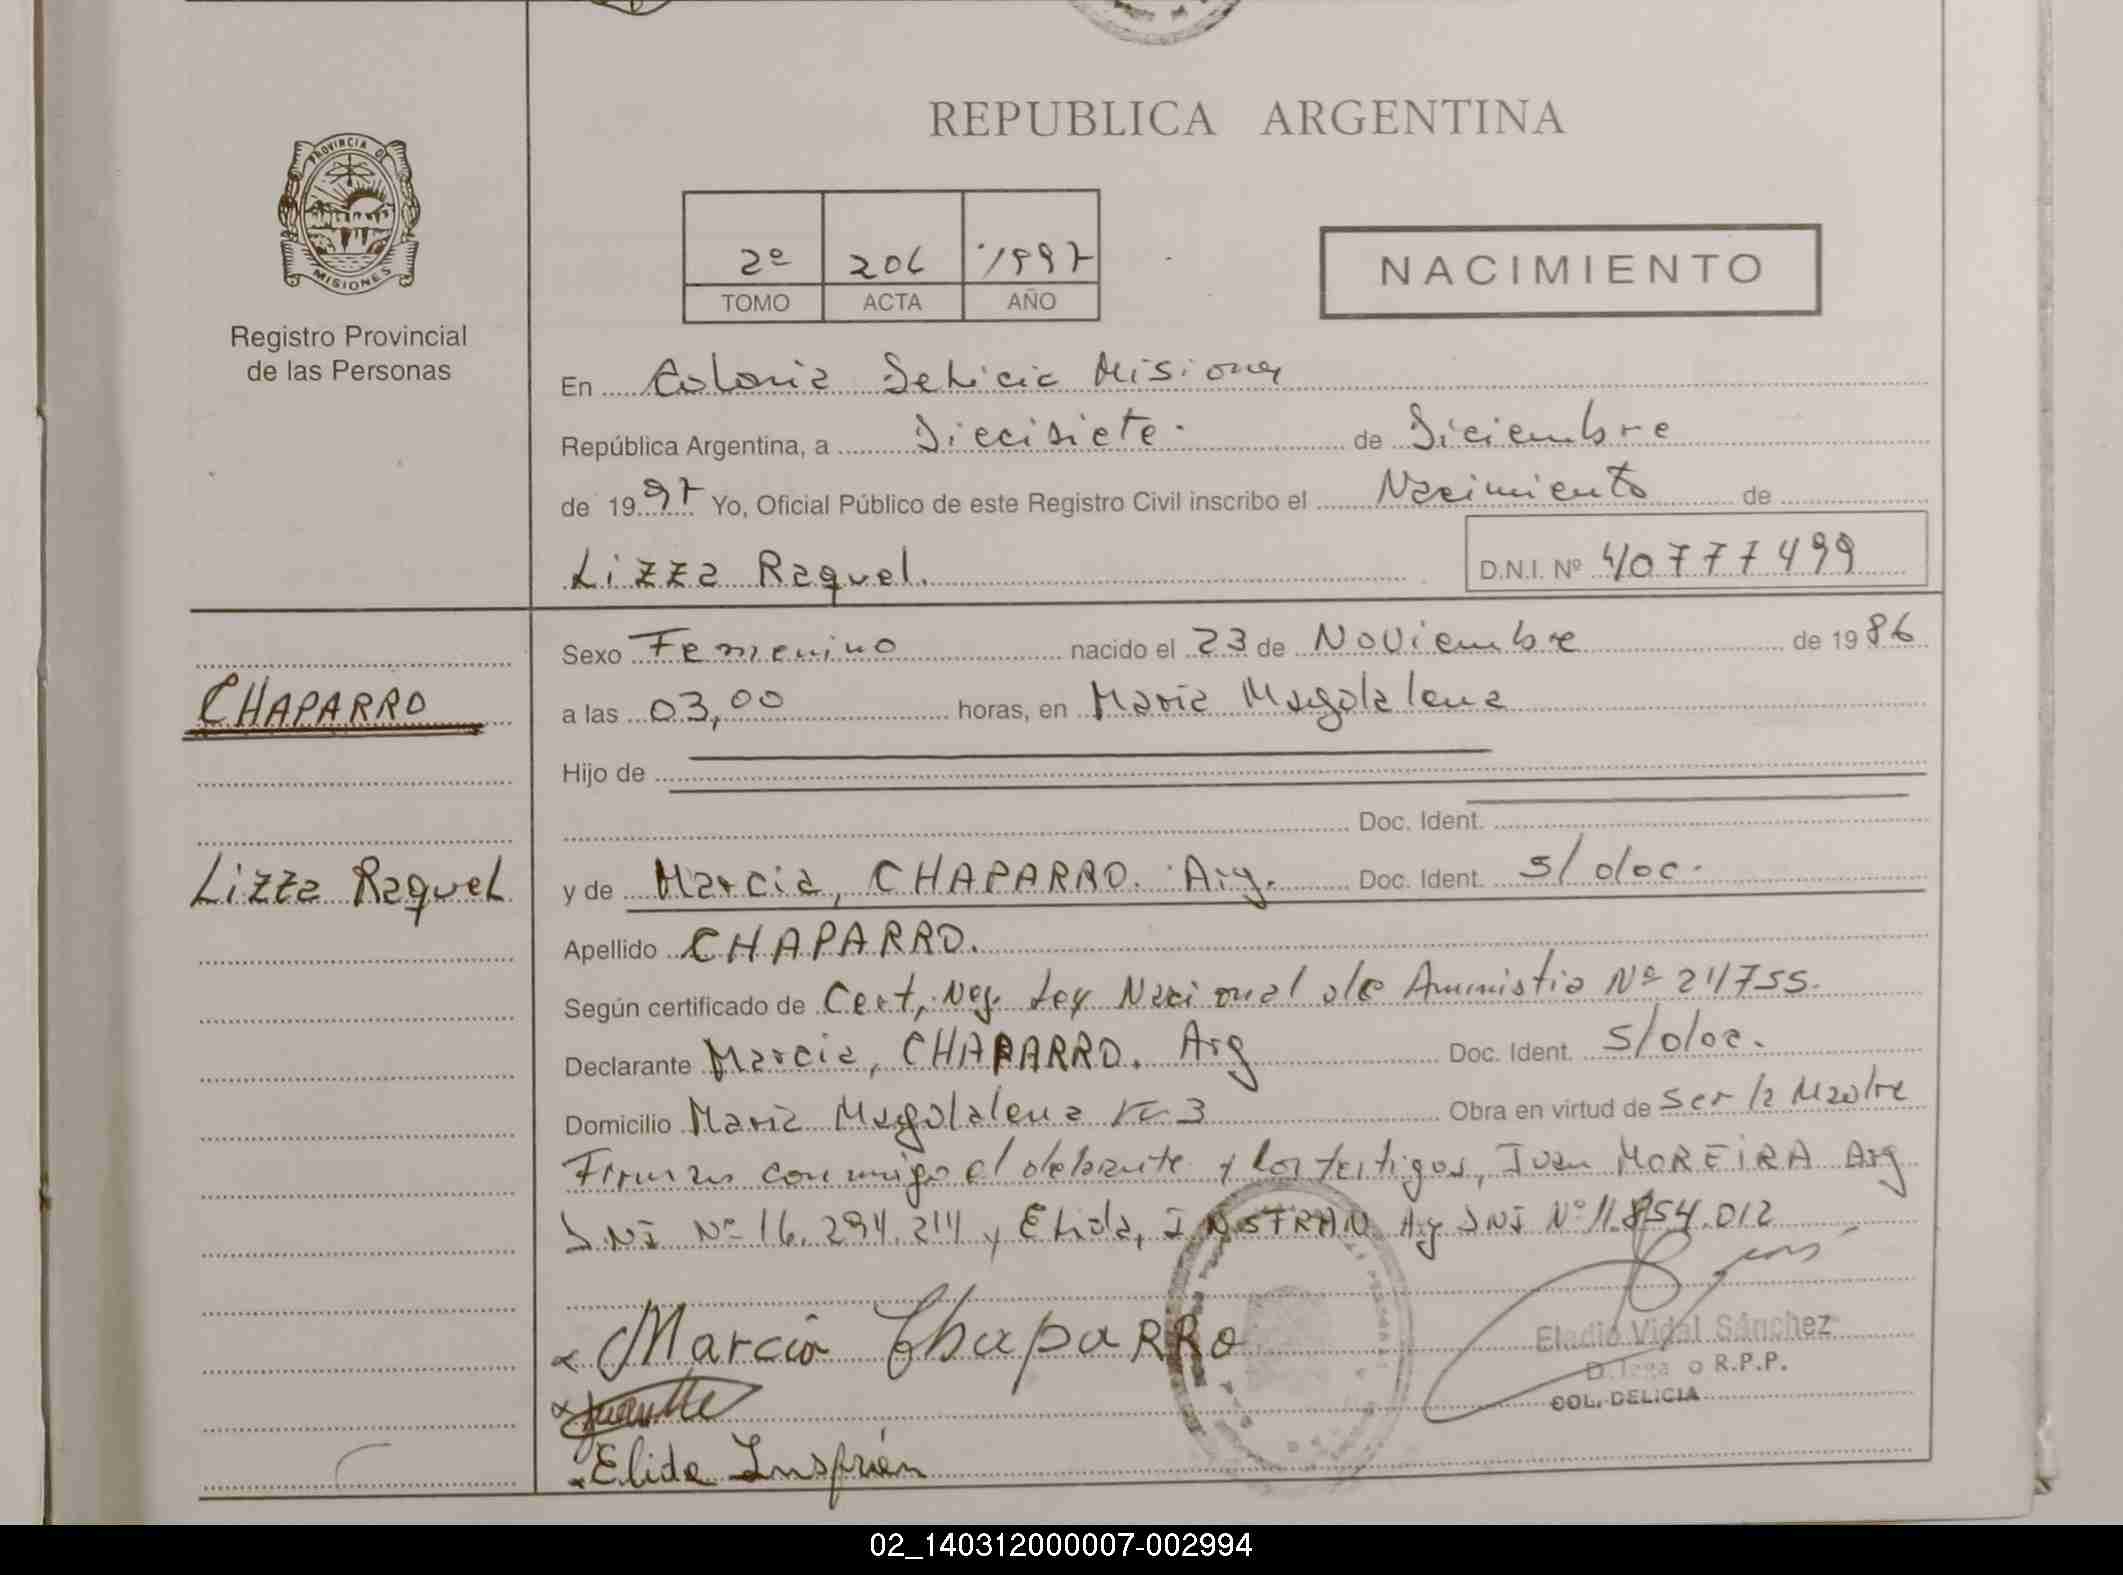 REPUBLICA ARGENTINA
PROVINCIA DE
MISIONES
Registro Provincial
de las Personas
2º 206 1997
TOMO ACTA AÑO
NACIMIENTO
En Colonia Delicia Misiones
República Argentina, a Diecisiete. de Diciembre
de 1997 Yo, Oficial Público de este Registro Civil inscribo el Nacimiento de
Lizza Raquel. D.N.I. Nº 40777499
Sexo Femenino nacido el 23 de Noviembre de 1986
CHAPARRO
a las 03,00 horas, en Maria Magdalena
Hijo de
Doc. Ident.
Lizza Raquel
y de Marcia, CHAPARRO. Arg. Doc. Ident. s/doc.
Apellido CHAPARRO.
Según certificado de Cert, Neg. Ley Nacional de Amnistia Nº 24755.
Declarante Marcia, CHAPARRO. Arg Doc. Ident. s/doc.
Domicilio Maria Magdalena Km 3 Obra en virtud de Ser la Madre
Firman conmigo el y los testigos, Juan MOREIRA Arg
DNI Nº 16.294.214 y Elida, Arg DNI Nº 11.854.012
Marcia Chaparro
Elida Insfrán
Eladio Vidal Sánchez
Delegado R.P.P.
COL. DELICIA
02_140312000007-002994